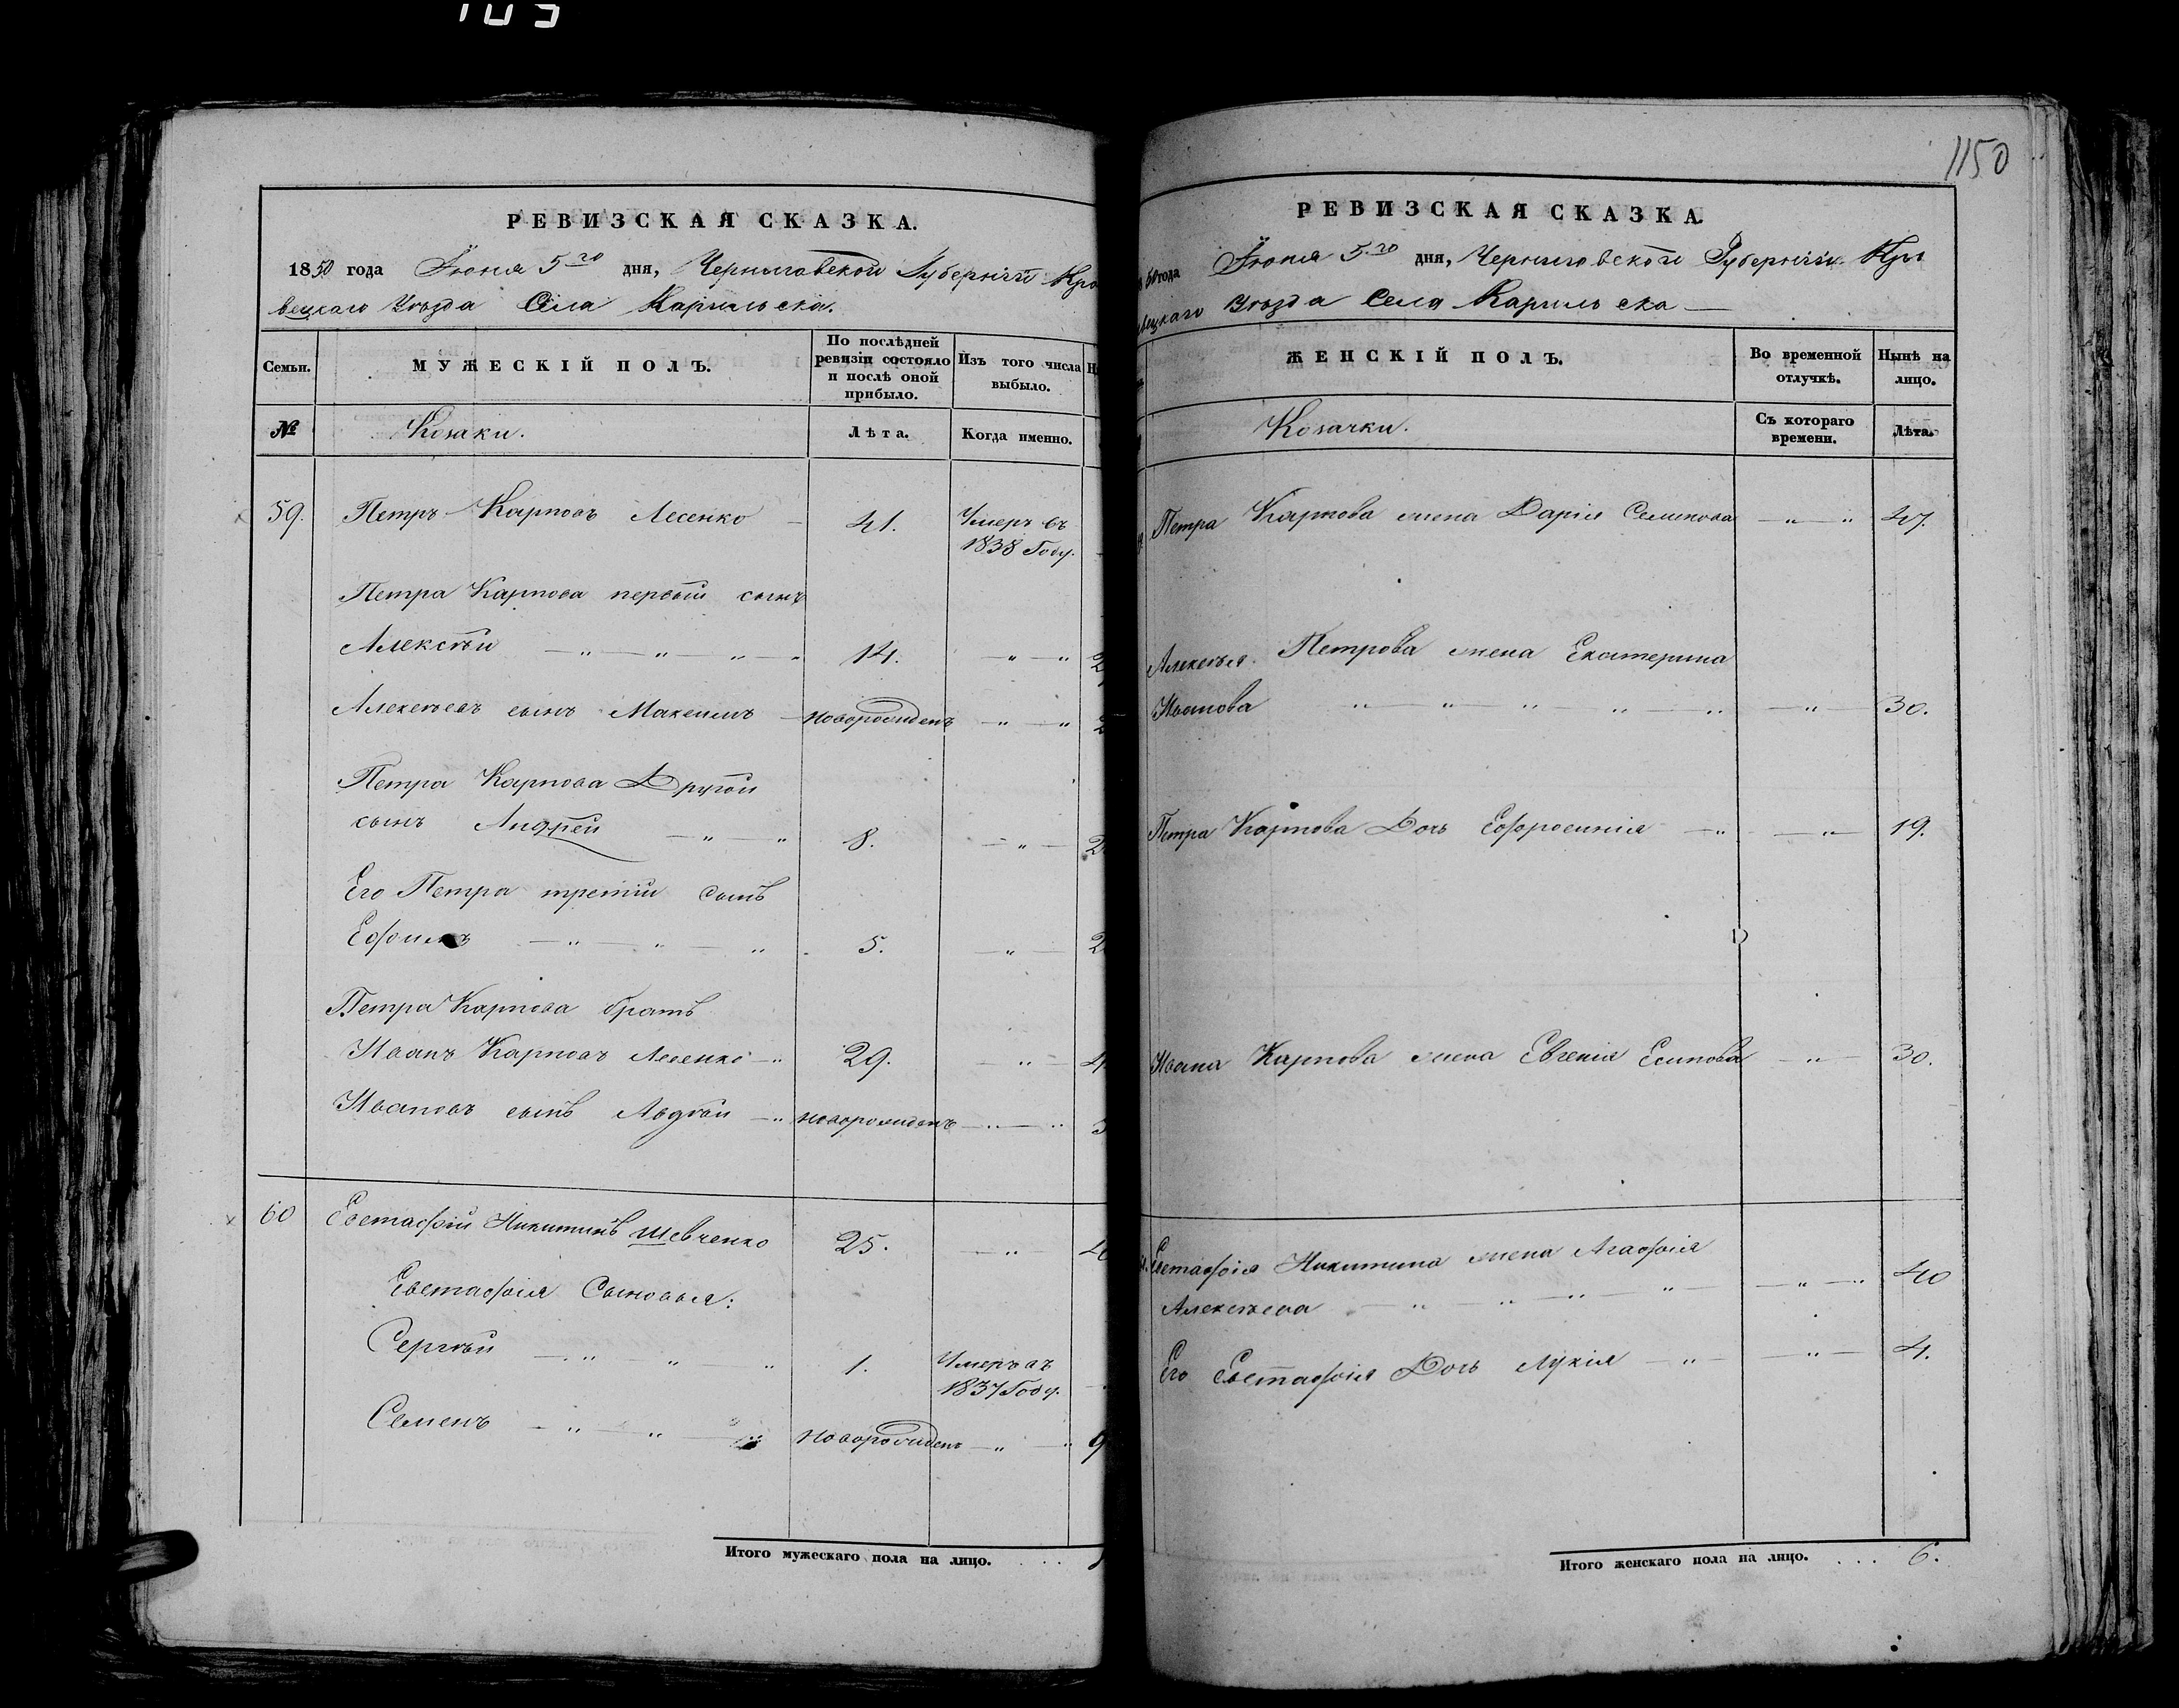 105
РЕВИЗСКАЯ СКАЗКА.
1850 года Іюня 5го дня, Черниговской Губерніи Кро
вецкаго Уѣзда Села Карильска.
Семьи.
МУЖЕСКІЙ ПОЛЪ.
По послѣдней
ревизіи состояло
и послѣ оной
прибыло.
Изъ того числа
выбыло.
№
Козаки.
Лѣта.
Когда именно.
59. Петръ Карповъ Лесенко 41. Умеръ въ
1838 Году.
Петра Карпова первый сынъ
Алексѣй 14.
Алексѣевъ сынъ Максимъ новорожденъ
Петра Карпова Другой
сынъ Андрей 8.
Его Петра третій сынъ
Ефимъ 5.
Петра Карпова братъ
Иванъ Карповъ Лесенко 29.
Ивановъ сынъ Авдѣй новорожденъ
60 Евстафій Никитинъ Шевченко 25.
Евстафія Сыновья:
Сергѣй 1. Умеръ въ
1837 Году.
Семенъ новорожденъ 9
Итого мужескаго пола на лицо. . . .
1150
РЕВИЗСКАЯ СКАЗКА.
50 года Іюня 5го дня, Черниговской Губерніи Кро
вецкаго Уѣзда Села Карильска
ЖЕНСКІЙ ПОЛЪ.
Во временной
отлучкѣ.
Нынѣ на
лицо.
Козачки.
Съ котораго
времени.
Лѣта.
Петра Карпова жена Дарія Семенова 47.
Алексѣя Петрова жена Екатерина
Иванова 30.
Петра Карпова Дочь Ефросинія 19.
Ивана Карпова жена Евгенія Есипова 30.
Евстафія Никитина жена Агафія
Алексѣева 40
Его Евстафія Дочь Лукія 4.
Итого женскаго пола на лицо. . . . 6.